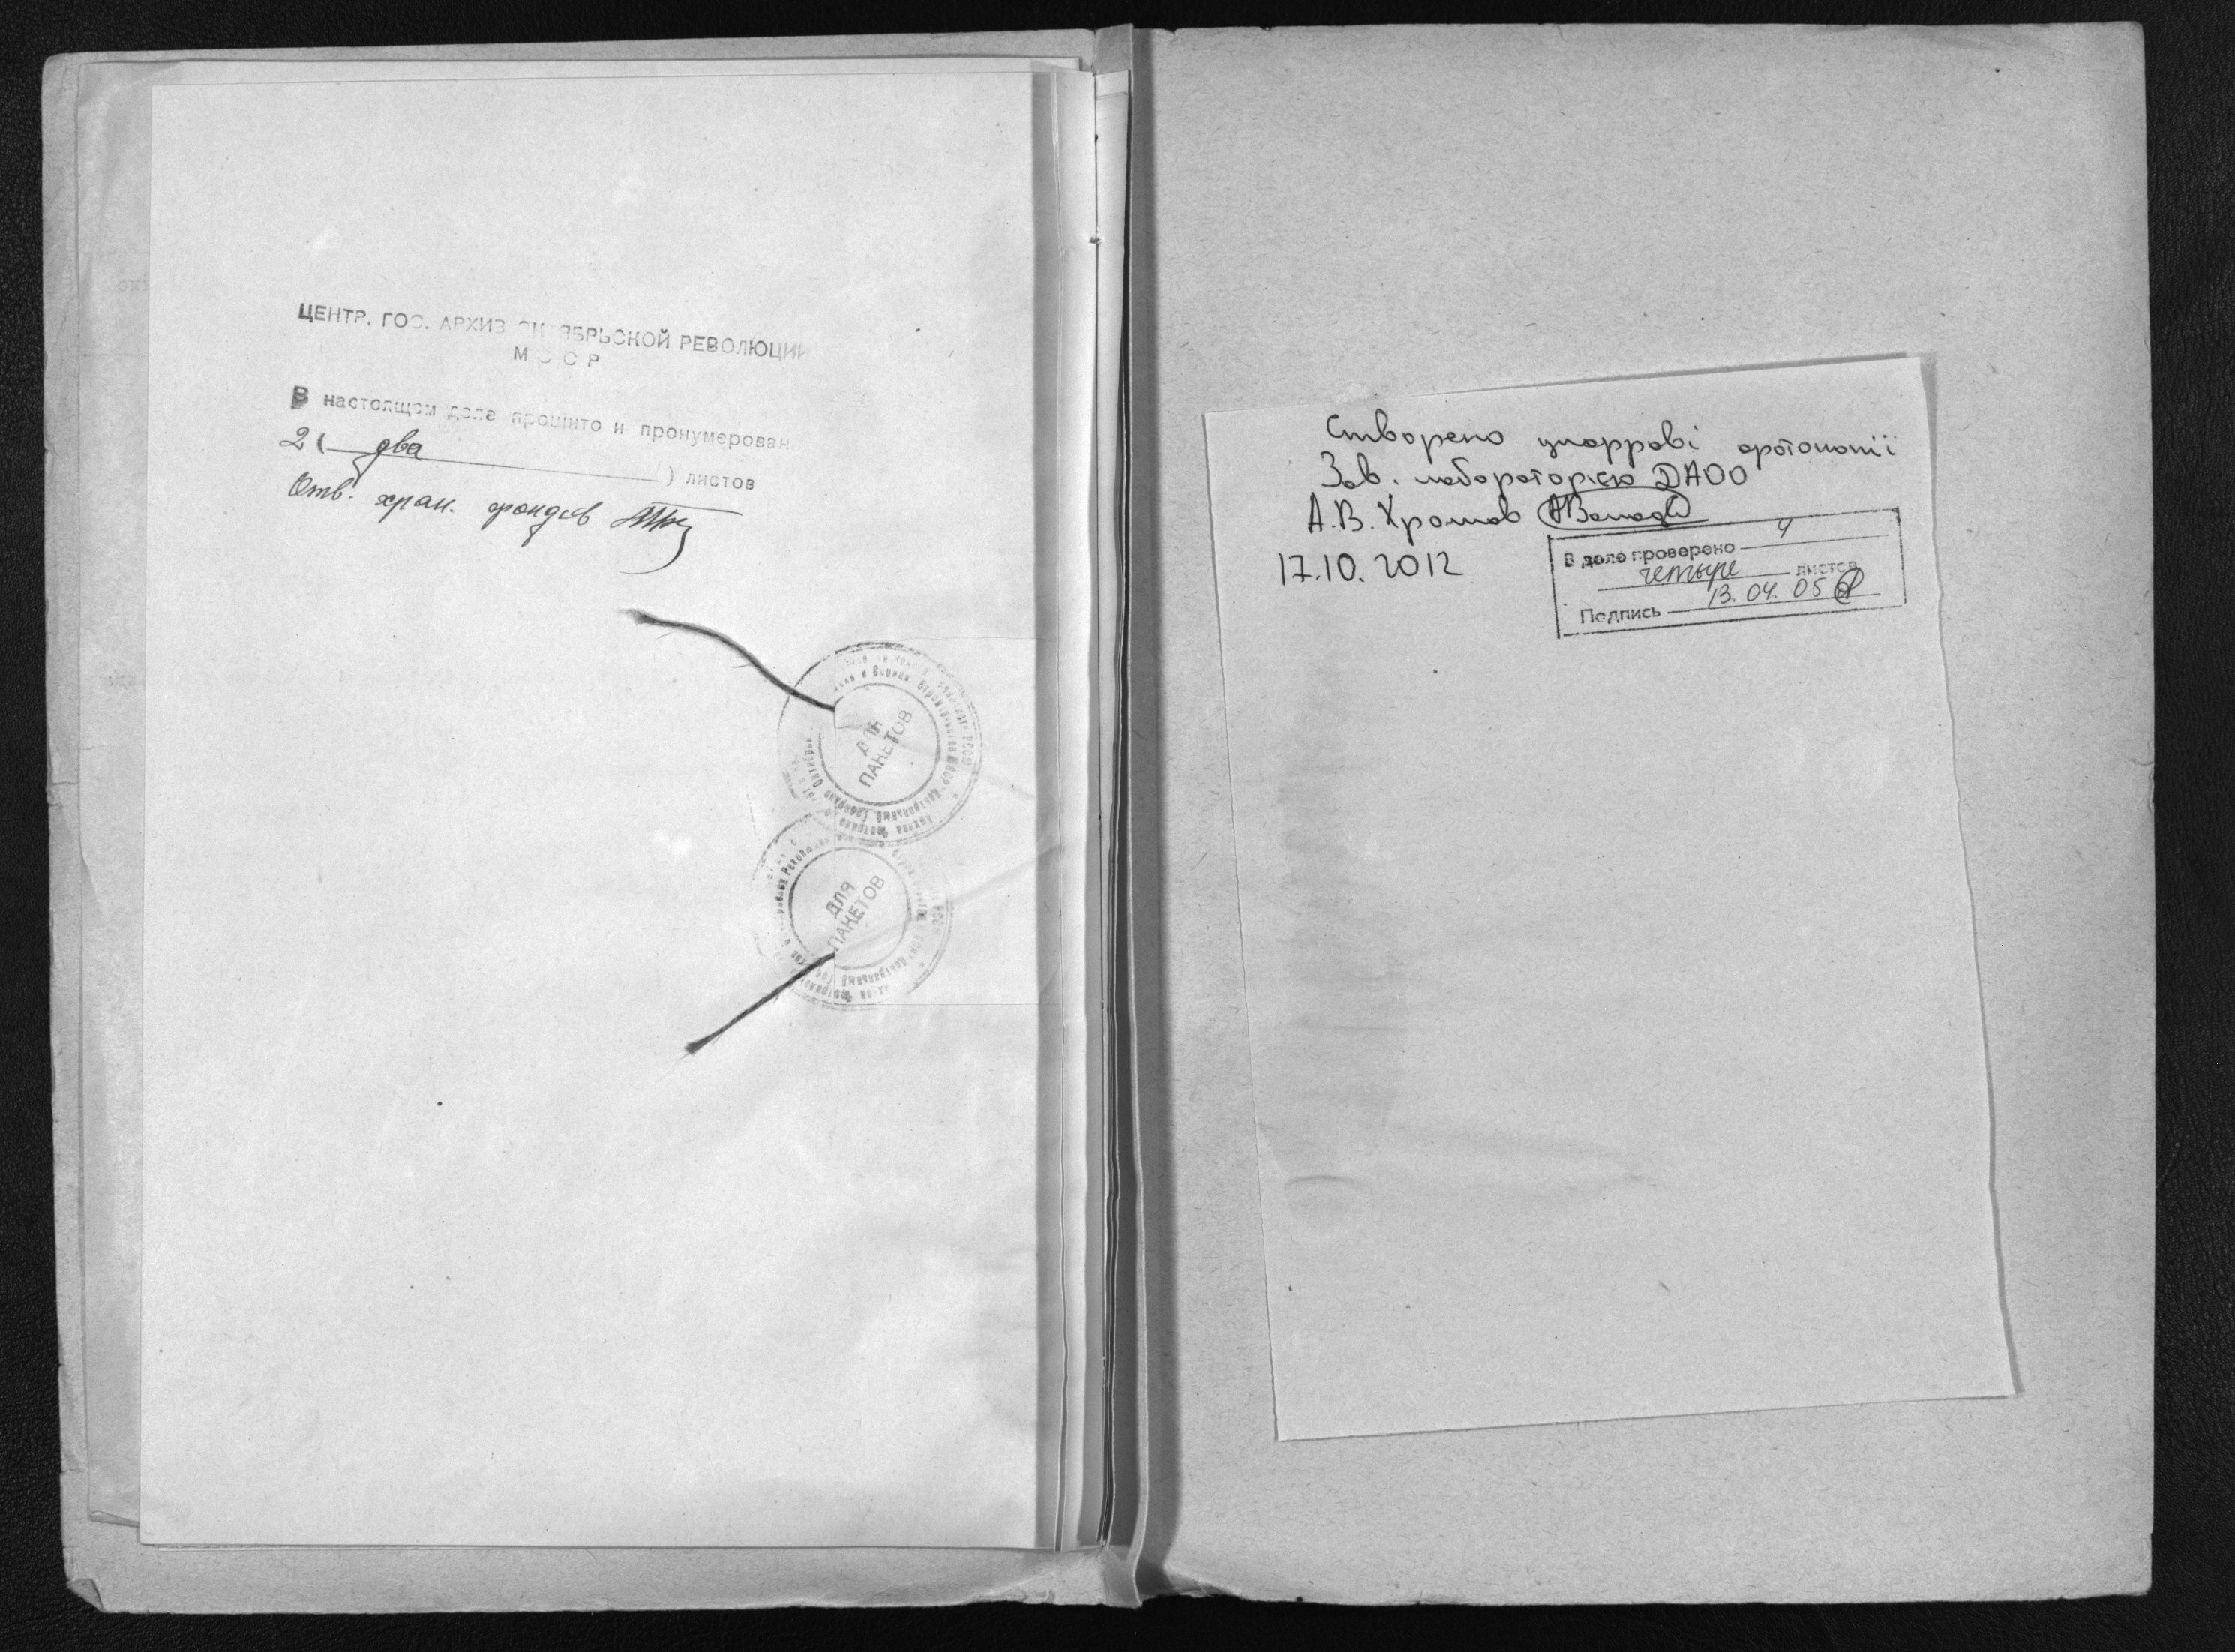 ЦЕНТР. ГОС. АРХИВ ОКТЯБРЬСКОЙ РЕВОЛЮЦИИ
МССР
В настоящем деле прошито и пронумерован
2 ( два ) листов
Отв. хран. фондов
ДЛЯ
ПАКЕТОВ
ДЛЯ
ПАКЕТОВ
Створено цифрові фотокопії
Зав. лабораторією ДАОО
А.В. Хромов
17.10.2012
В деле проверено 4
четыре листов
13.04.05
Подпись